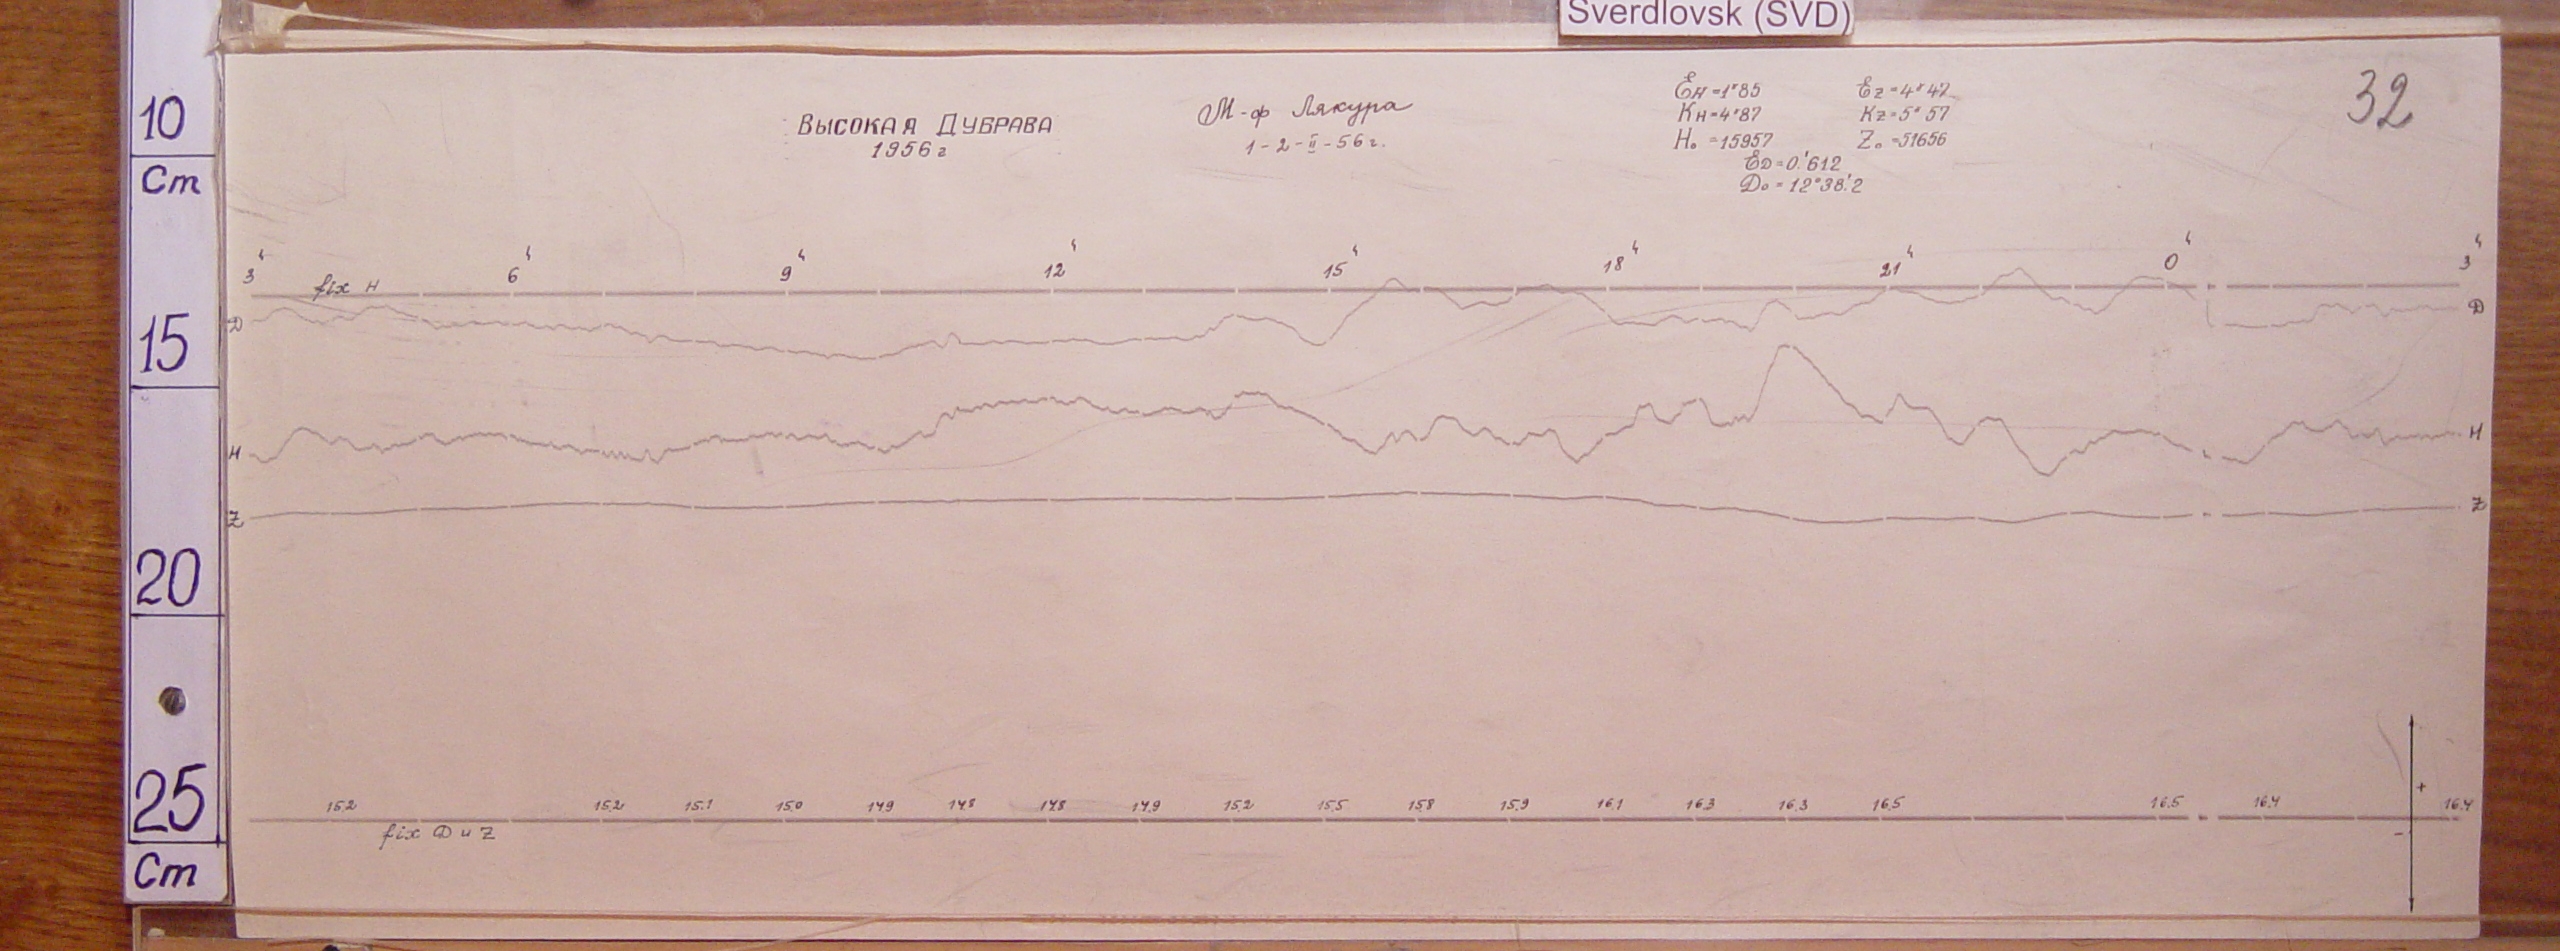 Sverdlovsk (SVD)
10
Cm
15
20
25
Cm
32
ВЫСОКАЯ ДУБРАВА
1956 г
М-ф Лякура
1-2-II-56 г.
Eн=1ˠ85 Ez=4ˠ42
Kн=4ˠ87 Kz=5ˠ57
H₀=15957 Z₀=51656
ED=0.'612
D₀=12°38.'2
3ч 6ч 9ч 12ч 15ч 18ч 21ч 0ч 3ч
fix H
D D
H H
Z Z
15.2 15.2 15.1 15.0 14.9 14.8 14.8 14.9 15.2 15.5 15.8 15.9 16.1 16.3 16.3 16.5 16.5 16.4 16.4
fix D и Z
+
-